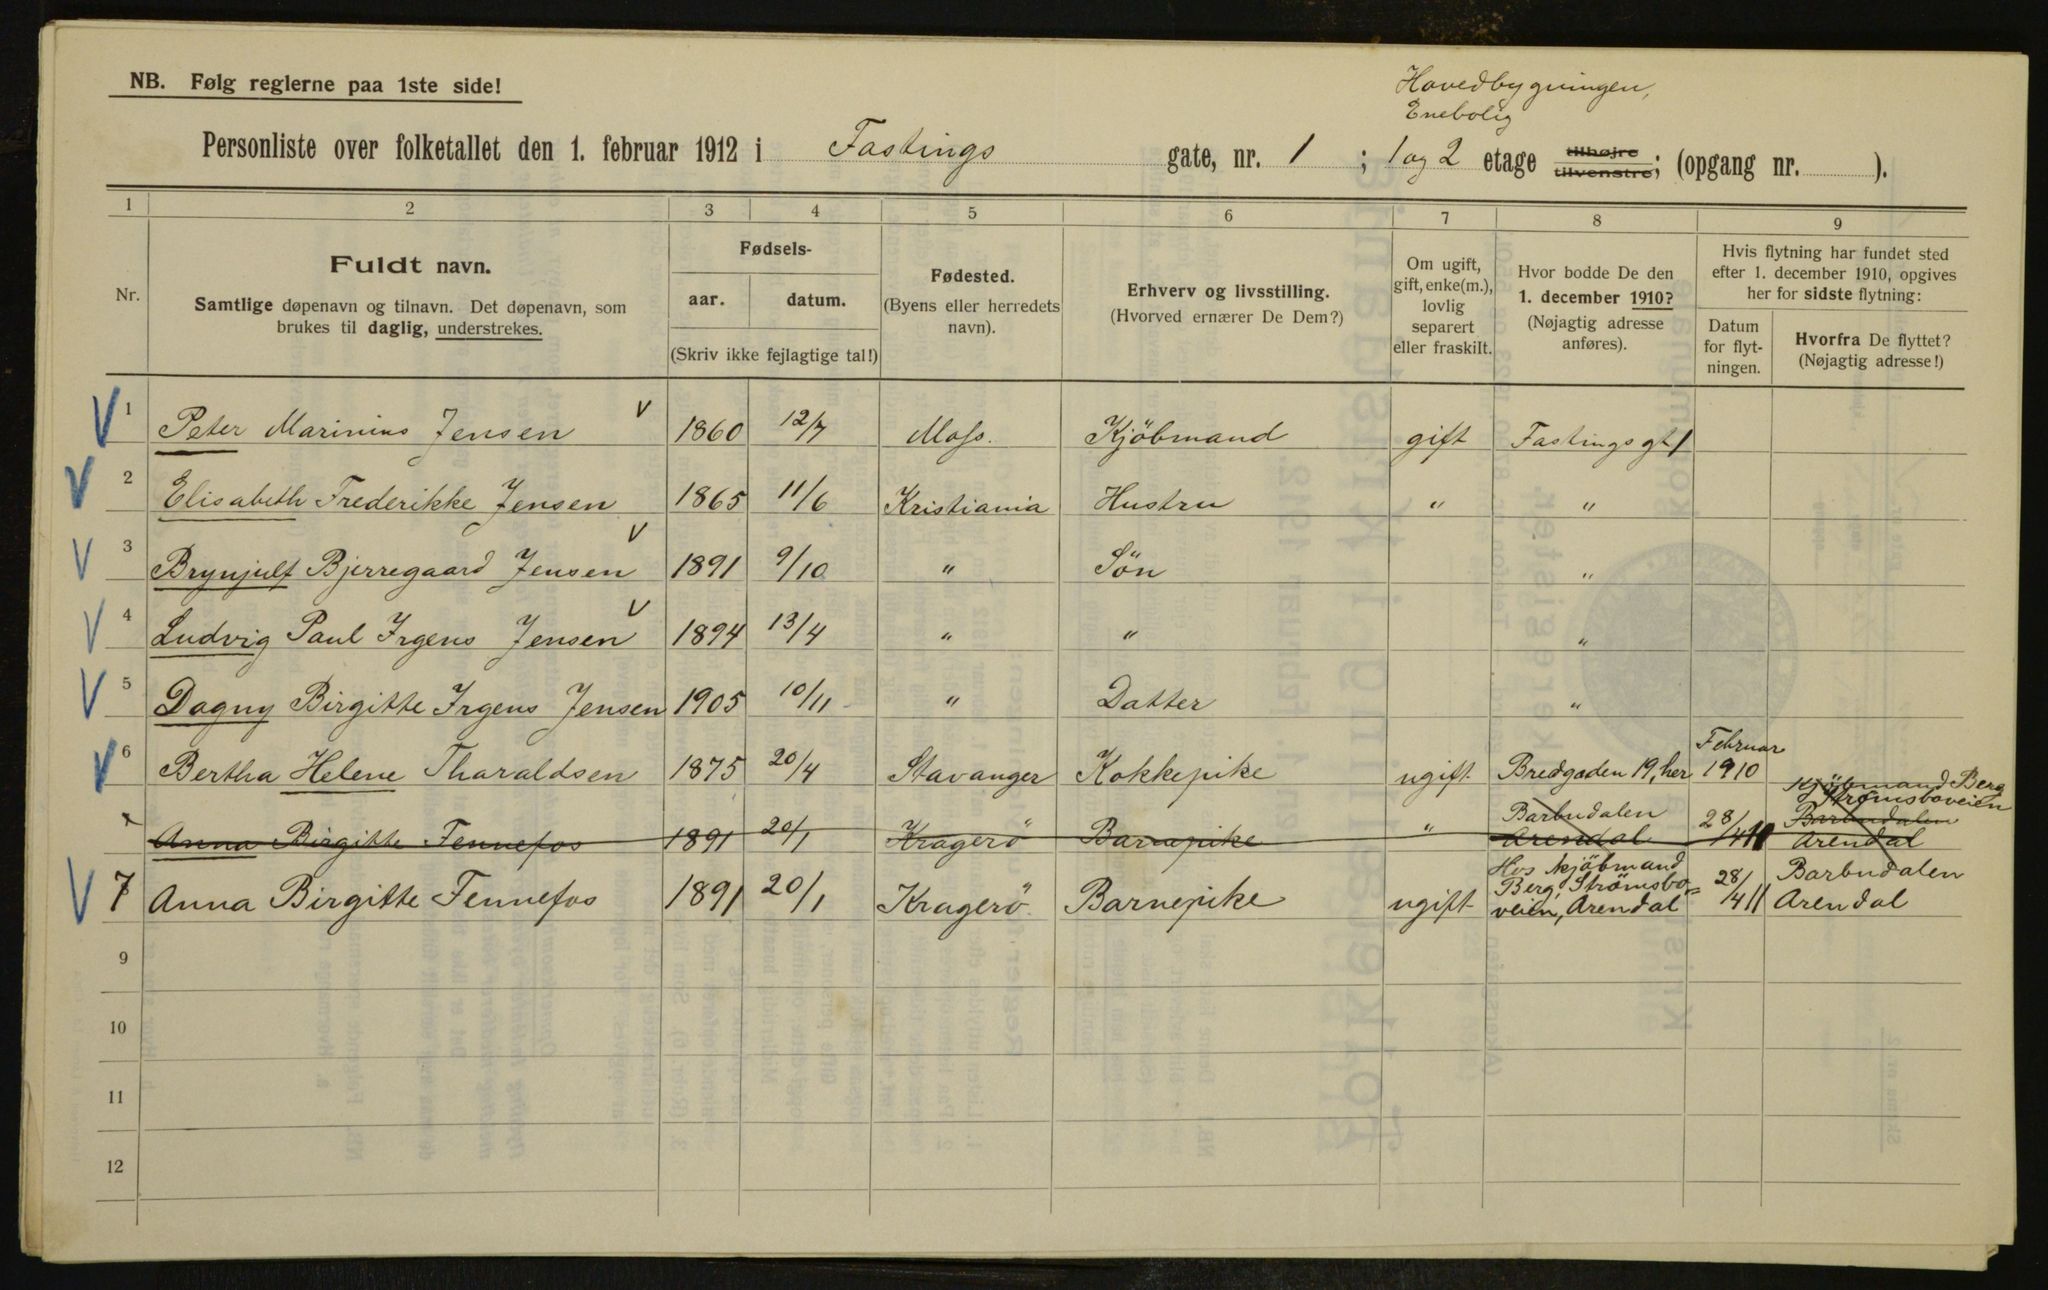 NB. Følg reglerne paa 1ste side!
Hovedbygningen,
Enebolig
Personliste over folketallet den 1. februar 1912 i Fastings gate, nr. 1 ; 1 og 2 etage tilhøjre tilvenstre; (opgang nr. ).
1 2 3 4 5 6 7 8 9
Nr.
Fuldt navn.
Samtlige døpenavn og tilnavn. Det døpenavn, som
brukes til daglig, understrekes.
Fødsels-
aar. datum.
(Skriv ikke fejlagtige tal!)
Fødested.
(Byens eller herredets
navn).
Erhverv og livsstilling.
(Hvorved ernærer De Dem?)
Om ugift,
gift, enke(m.),
lovlig
separert
eller fraskilt.
Hvor bodde De den
1. december 1910?
(Nøjagtig adresse
anføres).
Hvis flytning har fundet sted
efter 1. december 1910, opgives
her for sidste flytning:
Datum
for flyt-
ningen.
Hvorfra De flyttet?
(Nøjagtig adresse!)
1 Peter Marinius Jensen 1860 12/7 Moss. Kjöbmand gift Fastings gt 1
2 Elisabeth Frederikke Jensen 1865 11/6 Kristiania Hustru " "
3 Brynjulf Bjerregaard Jensen 1891 9/10 " Sön "
4 Ludvig Paul Irgens Jensen 1894 13/4 " " "
5 Dagny Birgitte Irgens Jensen 1905 10/11 " Datter "
6 Bertha Helene Tharaldsen 1875 20/4 Stavanger Kokkepike ugift Bredgaden 19, her Februar 1910
7 Anna Birgitte Fennefos 1891 20/1 Kragerö Barnepike " Barbudalen Arendal 28/4 11 Kjöbmand Berg Strömsboveien Barbudalen Arendal
7 Anna Birgitte Fennefos 1891 20/1 Kragerö Barnepike ugift Hos Kjöbmand Berg, Strömsbo= veien, Arendal 28/4 11 Barbudalen Arendal
9
10
11
12